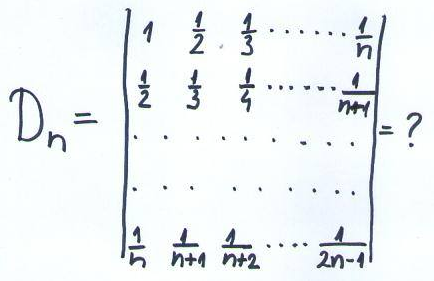 1 1/2 1/3 ...... 1/n
1/2 1/3 1/4 ...... 1/(n+1)
Dₙ = . . . . . . . . . = ?
. . . . . . . . .
1/n 1/(n+1) 1/(n+2) .... 1/(2n-1)